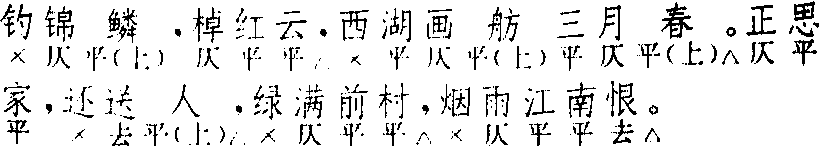 钓锦鳞,棹红云,西湖画舫三月春。正思
× 仄平(上) 仄平平△ × 平仄平(上)平仄平(上)△仄平
家,还送人,绿满前村,烟雨江南恨。
平 × 去平(上)△ × 仄平平△ × 仄平平去△